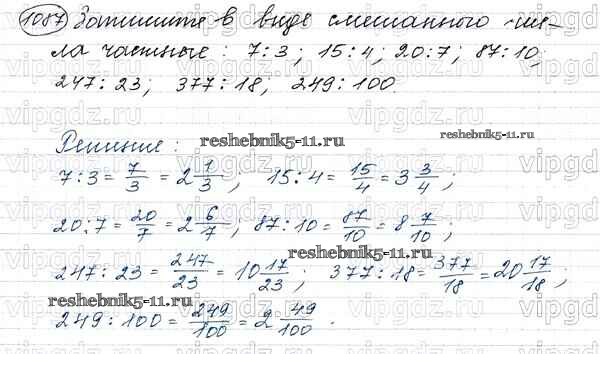 1087 Запишите в виде смешанного чис-
ла частные: 7:3; 15:4; 20:7; 87:10;
247:23; 377:18; 249:100.
Решение:
reshebnik5-11.ru
reshebnik5-11.ru
7:3 = 7/3 = 2 1/3; 15:4 = 15/4 = 3 3/4;
20:7 = 20/7 = 2 6/7; 87:10 = 87/10 = 8 7/10;
reshebnik5-11.ru
247:23 = 247/23 = 10 17/23; 377:18 = 377/18 = 20 17/18;
reshebnik5-11.ru
249:100 = 249/100 = 2 49/100.
vipgdz.ru vipgdz.ru vipgdz.ru vipgdz.ru